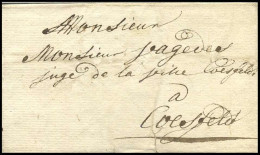 Monsieur
Monsieur pagedes
juge de la ville Coesfeld
a
Coesfeld